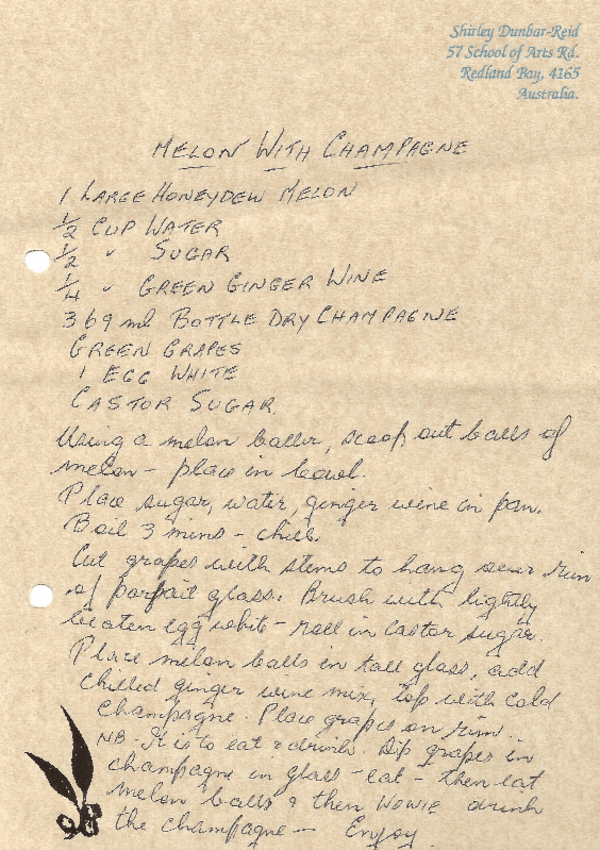 Shirley Dunbar-Reid
57 School of Arts Rd.
Redland Bay, 4165
Australia.
MELON WITH CHAMPAGNE
1 LARGE HONEYDEW MELON
1/2 CUP WATER
1/2 " SUGAR
1/4 " GREEN GINGER WINE
369 ml BOTTLE DRY CHAMPAGNE
GREEN GRAPES
1 EGG WHITE
CASTOR SUGAR.
Using a melon baller, scoop out balls of
melon - place in bowl.
Place sugar, water, ginger wine in pan.
Boil 3 mins - chill.
Cut grapes with stems to hang over rim
of parfait glass. Brush with lightly
beaten egg white - roll in castor sugar.
Place melon balls in tall glass, add
chilled ginger wine mix, top with cold
champagne. Place grapes on rim.
NB. It is to eat & drink. Dip grapes in
champagne in glass - eat - then eat
melon balls & then WOWIE drink
the champagne - Enjoy.